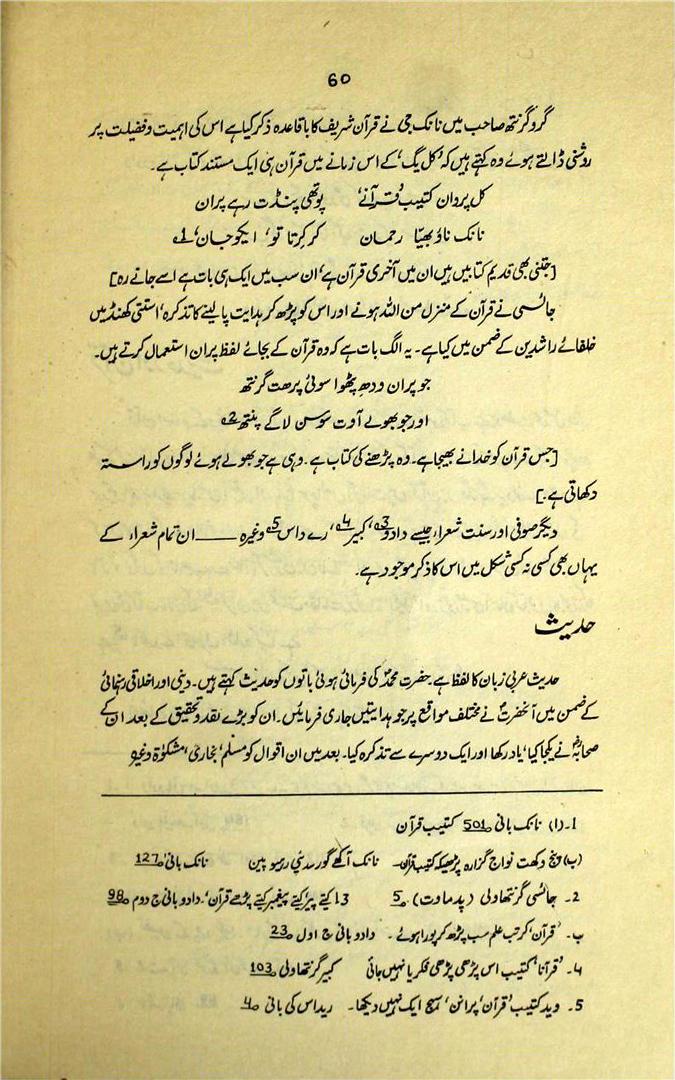 60
گرو گرنتھ صاحب میں نانک جی نے قرآن شریف کا باقاعدہ ذکر کیا ہے اس کی اہمیت و فضیلت پر
روشنی ڈالتے ہوئے وہ کہتے ہیں کہ ’کل یگ‘ کے اس زمانے میں قرآن ہی ایک مستند کتاب ہے۔
کل پروان کتیب ’قرآنے‘ پوتھی پنڈت رہے پران
نانک ناؤ بھیّا رحمان کر کرتا تو‘ ایکو جان‘ 1ے
[جتنی بھی قدیم کتابیں ہیں ان میں آخری قرآن ہے‘ ان سب میں ایک ہی بات ہے اسے جانے رہ]
جائسی نے قرآن کے منزل من اللہ ہونے اور اس کو پڑھ کر ہدایت پا لینے کا تذکرہ‘ استتی کھنڈ میں
خلفائے راشدین کے ضمن میں کیا ہے۔ یہ الگ بات ہے کہ وہ قرآن کے بجائے لفظ پران استعمال کرتے ہیں۔
جو پران ودھ پٹھوا سوئی پرھت گرنتھ
اور جو بھولے آوت سوسن لاگے پنتھ 2ے
[جس قرآن کو خدا نے بھیجا ہے۔ وہ پڑھنے کی کتاب ہے۔ وہی ہے جو بھولے ہوئے لوگوں کو راستہ
دکھاتی ہے۔]
دیگر صوفی اور سنت شعراء جیسے دادو 3ے‘ کبیر 4ے‘ رے داس 5ے وغیرہ ـــــ ان تمام شعراء کے
یہاں بھی کسی نہ کسی شکل میں اس کا ذکر موجود ہے۔
حدیث
حدیث عربی زبان کا لفظ ہے۔ حضرت محمدؐ کی فرمائی ہوئی باتوں کو حدیث کہتے ہیں۔ دینی اور اخلاقی رہنمائی
کے ضمن میں آنحضرتؐ نے مختلف مواقع پر جو ہدایتیں جاری فرمائیں۔ ان کو بڑے نقد و تحقیق کے بعد ان کے
صحابہؓ نے یکجا کیا‘ یاد رکھا اور ایک دوسرے سے تذکرہ کیا۔ بعد میں ان اقوال کو مسلم‘ بخاری‘ مشکوٰۃ وغیرہ
1۔ (ا) نانک بانی 501 کتیب قرآن
(ب) پنج وکھت نواج گزارہ پڑھیکہ کتیب قرآن۔ نانک آکھے گور سدئی رہیو پین نانک بانی‘ 127
2۔ جائسی گرنتھاولی (پدماوت) 5 3۔ ا کیتے پیر کیتے پیغمبر کیتے پڑھے قرآن‘۔ دادو بانی ج دوم 98
ب۔ ’قرآن‘ کرتب علم سب پڑھ کر پورا ہوئے۔ دادو بانی ج اول 23
4۔ ’قرآنا‘ کتیب اس پڑھی پڑھی فکر یا نہیں جائی کبیر گرنتھاولی 103
5۔ وید کتیب ’قرآن‘ پرانن‘ سہج ایک نہیں دیکھا۔ ریداس کی بانی 4